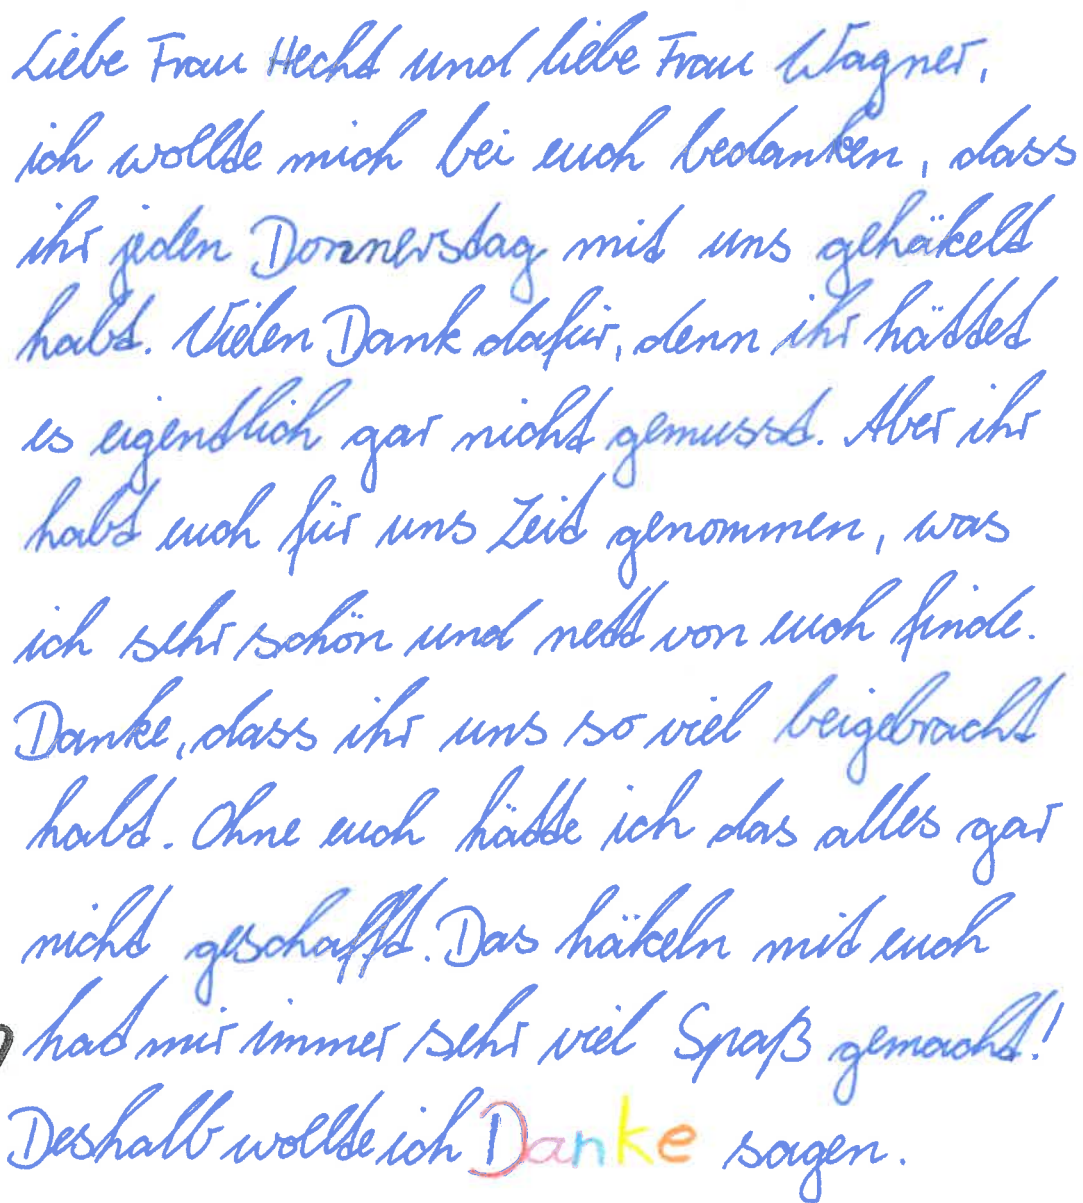 Liebe Frau Hecht und liebe Frau Wagner,
ich wollte mich bei euch bedanken, dass
ihr jeden Donnerstag mit uns gehäkelt
habt. Vielen Dank dafür, denn ihr hättet
es eigentlich gar nicht gemusst. Aber ihr
habt euch für uns Zeit genommen, was
ich sehr schön und nett von euch finde.
Danke, dass ihr uns so viel beigebracht
habt. Ohne euch hätte ich das alles gar
nicht geschafft. Das häkeln mit euch
hat mir immer sehr viel Spaß gemacht!
Deshalb wollte ich Danke sagen.